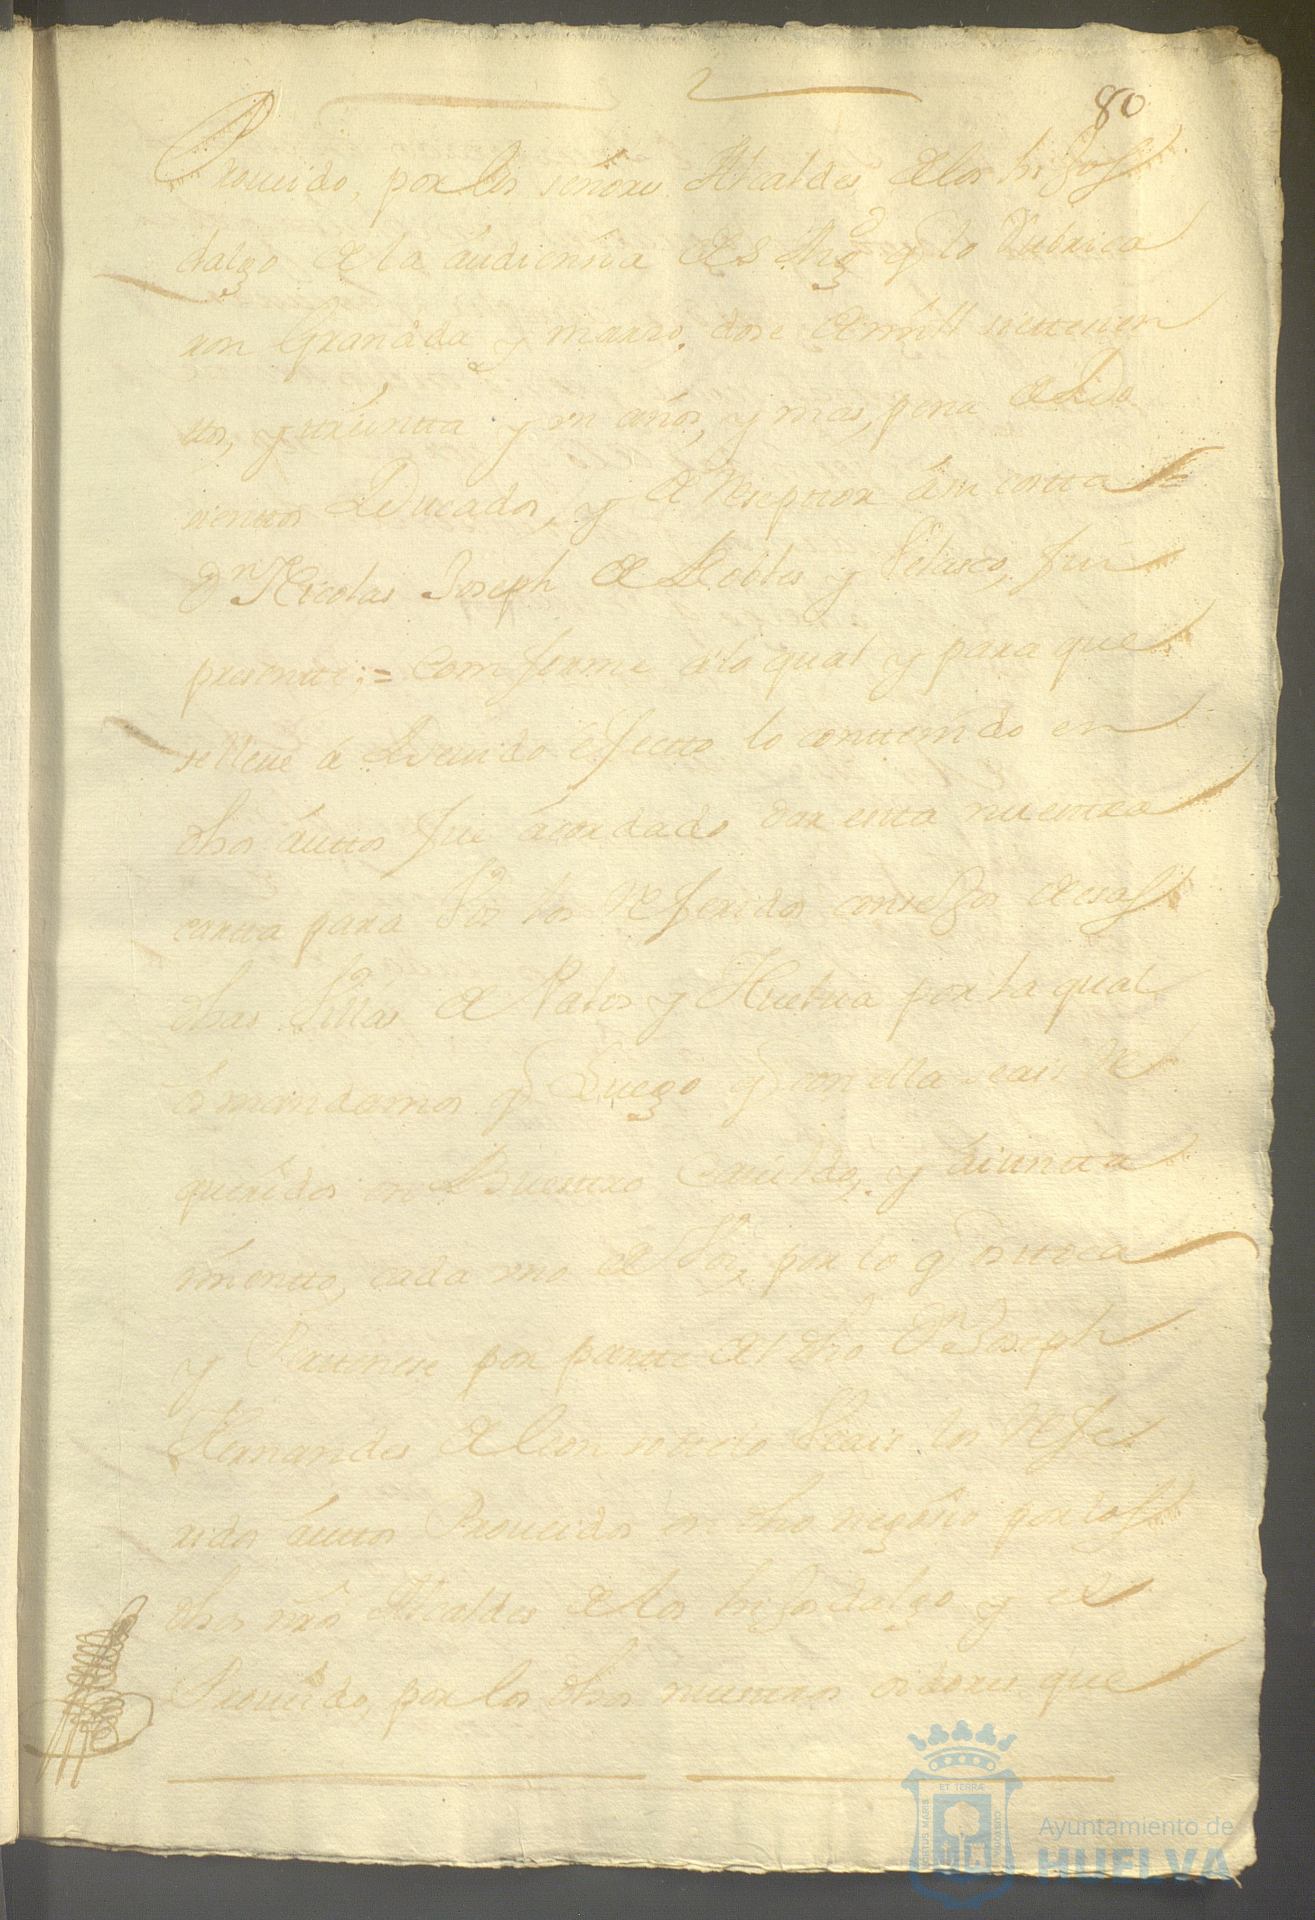 80
Proueido, por los señores Alcaldes de los hijos
dalgo de la áudiensia de S Mg.d y lo Rubrica
ron Granâda y marzo dose de mill setesien
ttos, y treintta y un años, y mas, pena de Do
sienttos Ducados, y de Reseptor ámi costta =
Dn Nicolas Joseph de Robles y Velasco, fuí
presentte; = Comforme a lo qual y para que
se lleue á Deuido efectto lo conttenido en
dhos áuttos fue ácordado dar estta nuestra
cartta para Vos los Referidos consejos de esas
dhas Villas de Palos y Huelua por la qual
os mandamos q Luego q con ella seais Re
queridos en Vuestro Cauildo, y áiuntta
miento, cada uno de Vos, por lo q os ttoca
y Perttenese por partte del dho Dn Joseph
Hernandes de leon sotteto Veais los Refe
ridos áuttos Proueidos en dho negósio por los
dhos nrôs Alcaldes de los hijosdalgo y el
Proueido, por los dhos nuestros oidores que
ET TERRÆ
PORTUS MARIS
CUSTODIA
Ayuntamiento de
HUELVA